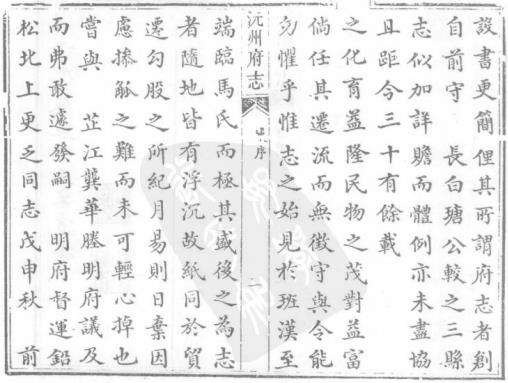 設書更簡俚其所謂府志者創
自前守 長白瑭公較之三縣
志似加詳贍而體例亦未盡協
且距今三十有餘載
之化育益隆民物之茂對益富
倘任其遷流而無徵守與令能
勿懼乎惟志之始見於班漢至
沅州府志
序
端臨馬氏而極其盛後之為志
者隨地皆有浮沉故紙同於貿
遷勾股之所紀月易則日棄因
慮操觚之難而未可輕心掉也
嘗與 芷江龔華塍明府議及
而弗敢遽發嗣 明府督運鉛
松北上更乏同志戊申秋 前